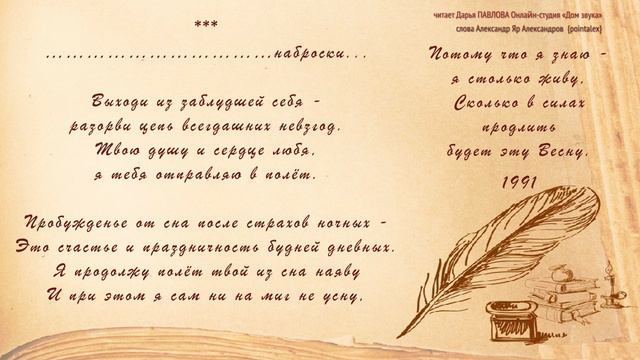 читает Дарья ПАВЛОВА Онлайн-студия «Дом звука»
слова Александр Яр Александров (pointalex)
***
................................наброски...
Выходи из заблудшей себя -
разорви цепь всегдашних невзгод.
Твою душу и сердце любя,
я тебя отправляю в полёт.
Пробужденье от сна после страхов ночных -
Это счастье и праздничность будней дневных.
Я продолжу полёт твой из сна наяву
И при этом я сам ни на миг не усну,
Потому что я знаю -
я столько живу,
Сколько в силах
продлить
будет эту Весну.
1991